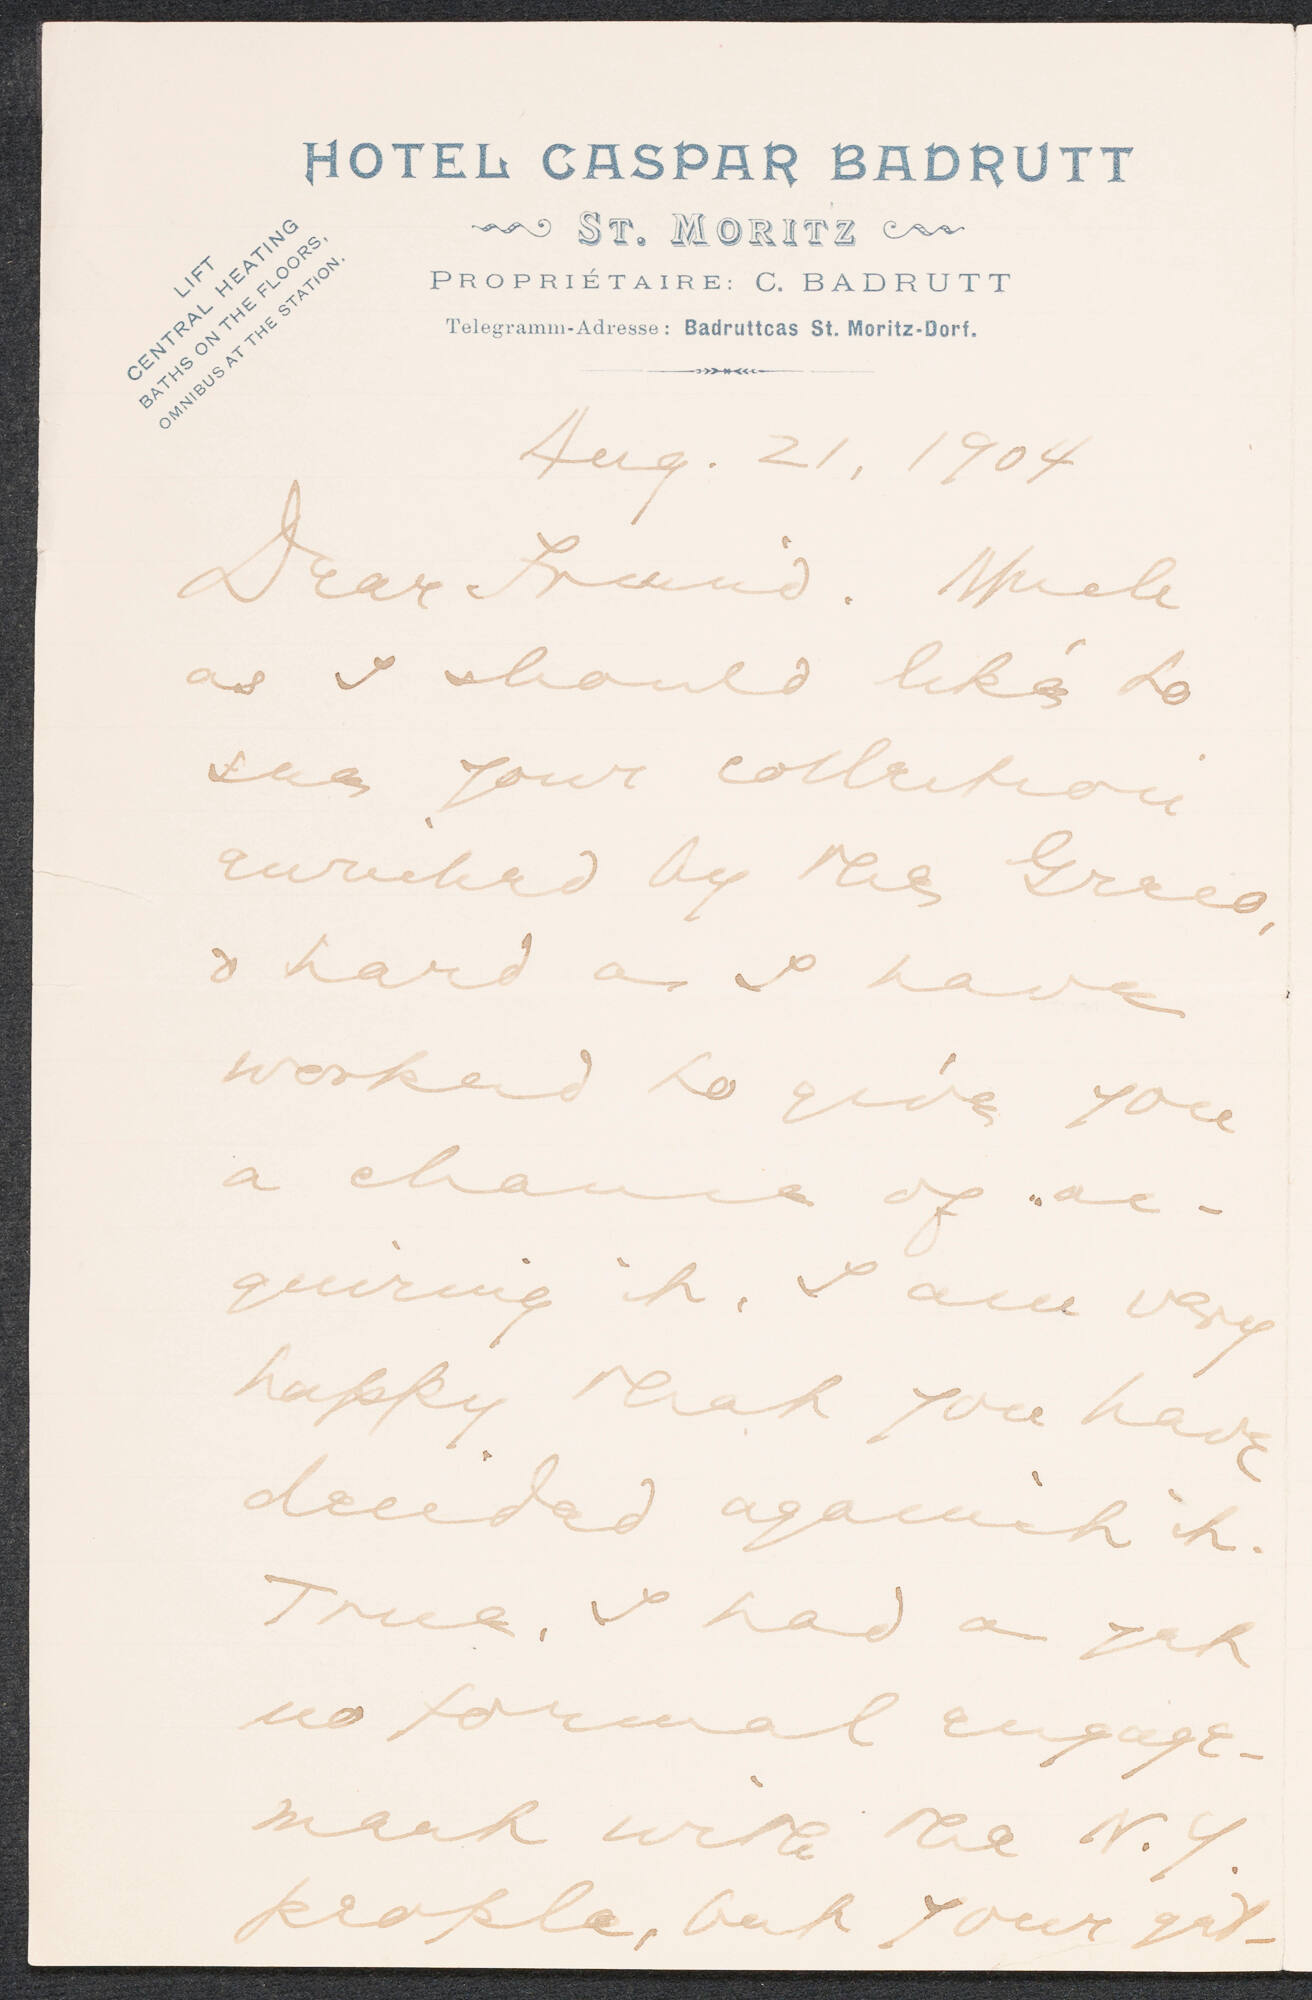 HOTEL CASPAR BADRUTT
ST. MORITZ
PROPRIÉTAIRE: C. BADRUTT
Telegramm-Adresse: Badruttcas St. Moritz-Dorf.
LIFT
CENTRAL HEATING
BATHS ON THE FLOORS,
OMNIBUS AT THE STATION.
Aug. 21, 1904
Dear Friend. Much
as I should like to
see your collection
enriched by the Greco,
& hard as I have
worked to give you
a chance of ac-
quiring it, I am very
happy that you have
decided against it.
True, I had as yet
no formal engage-
ment with the N.Y.
people, but your get-